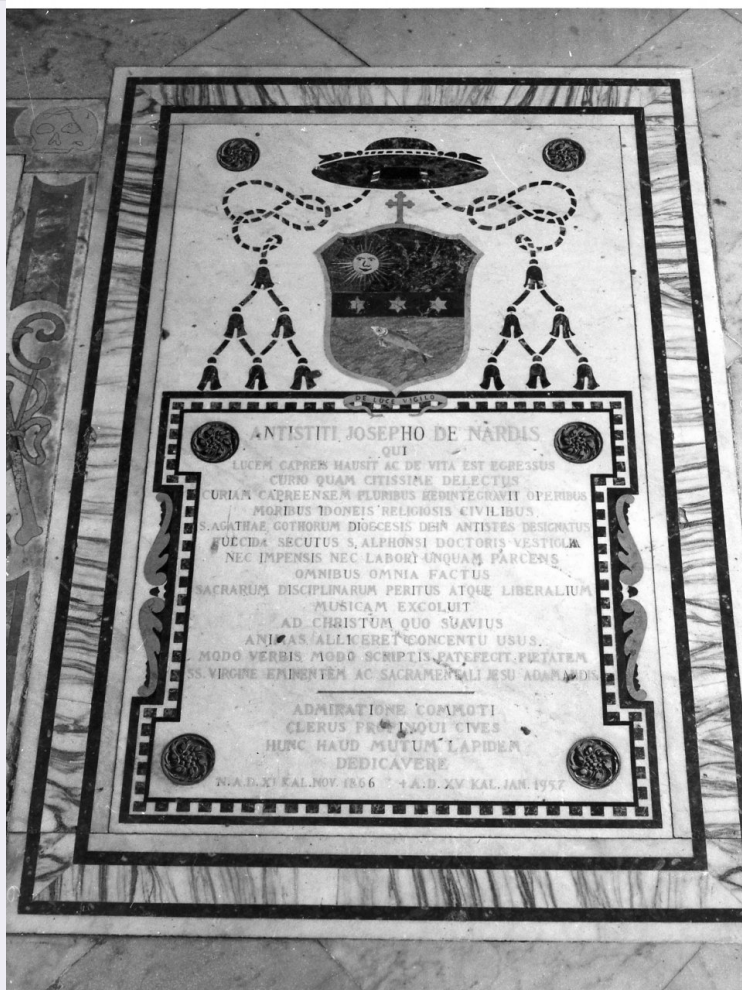 DE LUCE VIGILO
ANTISTITI JOSEPHO DE NARDIS
QUI
LUCEM CAPREIS HAUSIT AC DE VITA EST EGRESSUS
CURIO QUAM CITISSIME DELECTUS
CURIAM CAPREENSEM PLURIBUS REDINTEGRAVIT OPERIBUS
MORIBUS IDONEIS RELIGIOSIS CIVILIBUS.
S. AGATHAE GOTHORUM DIOECESIS DEIN ANTISTES DESIGNATUS
SECUTUS S. ALPHONSI DOCTORIS VESTIGIA
NEC IMPENSIS NEC LABORI UNQUAM PARCENS
OMNIBUS OMNIA FACTUS
SACRARUM DISCIPLINARUM PERITUS ATQUE LIBERALIUM
MUSICAM EXCOLUIT
AD CHRISTUM QUO SUAVIUS
ANIMAS ALLICERET CONCENTU USUS.
MODO VERBIS MODO SCRIPTIS PATEFECIT PIETATEM
SS. VIRGINE EMINENTEM AC SACRAMENTALI JESU ADAMANDIS
ADMIRATIONE COMMOTI
CLERUS PROPINQUI CIVES
HUNC HAUD MUTUM LAPIDEM
DEDICAVERE
N. A. D. XI KAL. NOV. 1866 + A. D. XV KAL. JAN. 1957